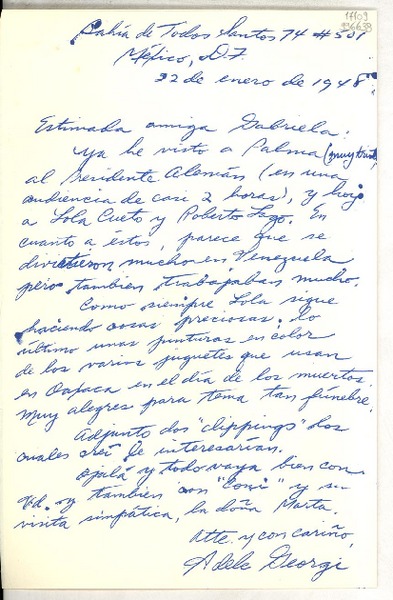 Bahía de Todos Santos 74 #501
México, D.F.
22 de enero de 1948
Estimada amiga Gabriela:
Ya he visto a Palma (muy triste)
al Presidente Alemán (en una
audiencia de casi 2 horas), y hoy
a Lola Cueto y Roberto Lago. En
cuanto a éstos, parece que se
divirtieron mucho en Venezuela
pero tambien trabajaban mucho.
Como siempre Lola sigue
haciendo cosas preciosas. Lo
último unas pinturas en color
de los varios juguetes que usan
en Oaxaca en el día de los muertos.
Muy alegres para tema tan fúnebre.
Adjunto dos "clippings" los
cuales creí le interesarían.
Ojalá y todo vaya bien con
Vd. y tambien con "Coni" y su
visita simpática, la doña Marta.
Atte. y con cariño,
Adela Georgi